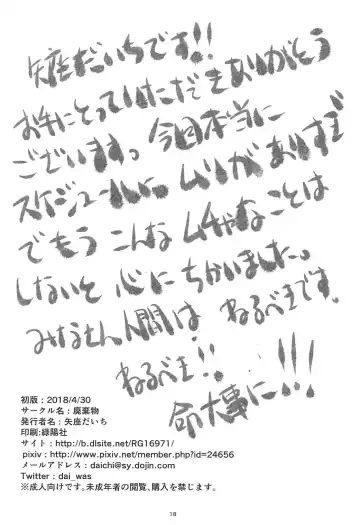 矢座だいちです!!
お手にとっていただきありがとう
ございます。今回本当に
スケジュールに、ムリがありすぎ
でもう こんな ムチャなことは
しないと 心に ちかいました。
みなさん人間は、ねるべきです。
ねるべき!!
命大事に!!!
初版：2018/4/30
サークル名：廃棄物
発行者名：矢座だいち
印刷:緑陽社
サイト：http://b.dlsite.net/RG16971/
pixiv：http://www.pixiv.net/member.php?id=24656
メールアドレス：daichi@sy.dojin.com
Twitter：dai_was
※成人向けです。未成年者の閲覧、購入を禁じます。
18